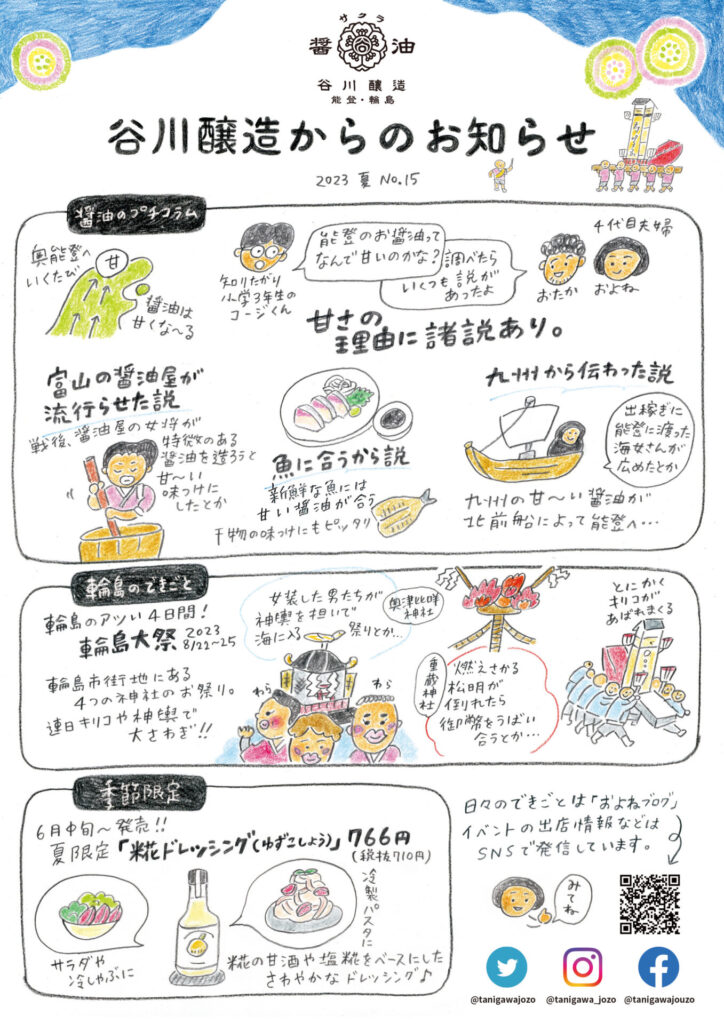 サクラ
醤油
谷川醸造
能登・輪島
谷川醸造からのお知らせ
2023 夏 No.15
醤油のプチコラム
奥能登へ
いくたび
甘
醤油は
甘くな〜る
知りたがり
小学3年生の
コージくん
能登のお醤油って
なんで甘いのかな？
調べたら
いくつも説が
あったよ
4代目夫婦
おたか
およね
甘さの
理由に諸説あり。
富山の醤油屋が
流行らせた説
戦後、醤油屋の女将が
特徴のある
醤油を造ろうと
甘〜い
味つけに
したとか
魚に合うから説
新鮮な魚には
甘い醤油が合う
干物の味つけにもピッタリ
九州から伝わった説
出稼ぎに
能登に渡った
海女さんが
広めたとか
九州の甘〜い醤油が
北前船によって能登へ…
輪島のできごと
輪島のアツい4日間！
輪島大祭 2023
8/22~25
輪島市街地にある
4つの神社のお祭り。
連日キリコや神輿で
大さわぎ!!
女装した男たちが
神輿を担いで
海に入る 祭りとか…
奥津比咩
神社
わら
わら
重蔵神社
燃えさかる
松明が
倒れたら
御幣をうばい
合うとか…
とにかく
キリコが
あばれまくる
季節限定
6月中旬〜発売!!
夏限定「糀ドレッシング(ゆずこしょう)」766円
(税抜710円)
サラダや
冷しゃぶに
冷製パスタに
糀の甘酒や塩糀をベースにした
さわやかなドレッシング♪
日々のできごとは「およねブログ」
イベントの出店情報などは
SNSで発信しています。
みてね
@tanigawajozo
@tanigawa_jozo
@tanigawajouzo